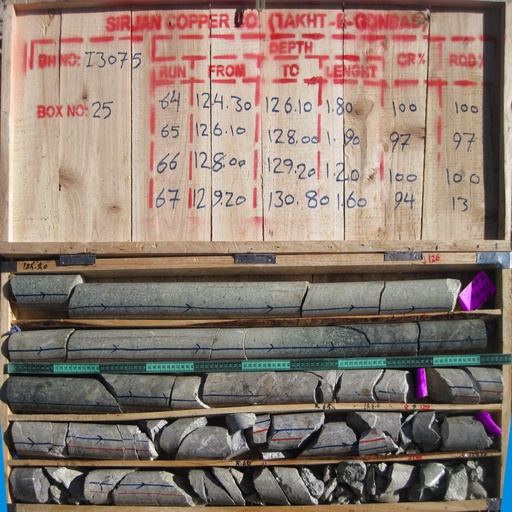 SIRJAN COPPER CO. (TAKHT-E-GONBAD)
DEPTH
BH NO: I3075
RUN FROM TO LENGHT CR% RQD%
BOX NO: 25
64 124.30 126.10 1.80 100 100
65 126.10 128.00 1.90 97 97
66 128.00 129.20 1.20 100 100
67 129.20 130.80 1.60 94 13
124.30
126